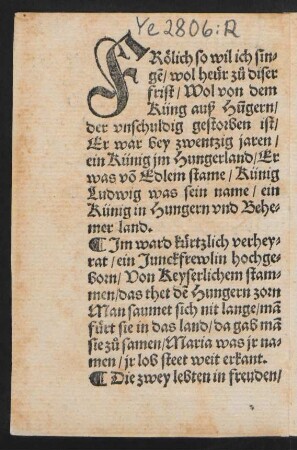 Ye 2806:R
FRölich so wil ich sin-
gē/ wol heür zů diser
frist/ Wol von dem
Küng auß Hūgern/
der vnschuldig gestorben ist/
Er war bey zwentzig jaren/
ein Künig jm Hungerland/ Er
was vō Edlem stame/ Künig
Ludwig was sein name/ ein
Künig in Hungern vnd Behe-
mer land.
¶ Im ward kürtzlich verhey-
rat/ ein Junckfrewlin hochge-
born/ Von Keyserlichem stam-
men/ das thet dē Hungern zorn
Man saumet sich nit lange/ mā
fürt sie in das land/ da gab mā
sie zů samen/ Maria was jr na-
men/ jr lob steet weit erkant.
¶ Die zwey lebten in freuden/